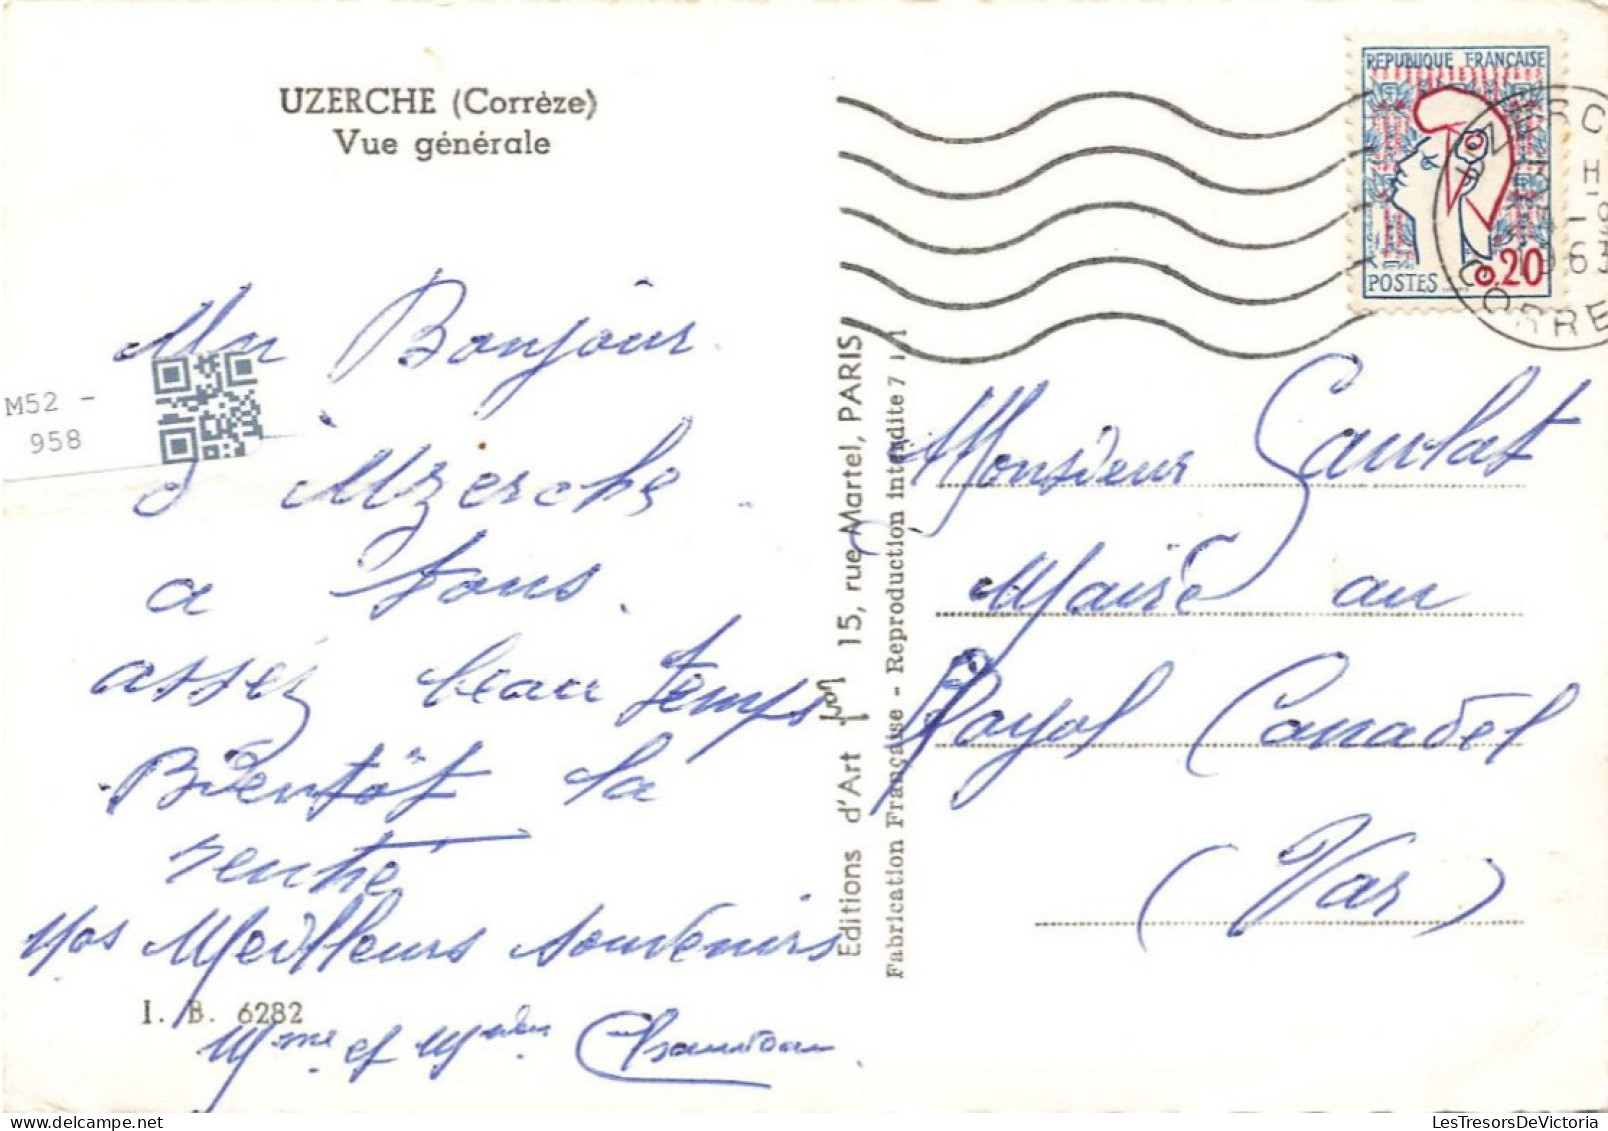 UZERCHE (Corrèze)
Vue générale
Un Bonjour
d Uzerche
a tous.
assez beau temps
Bientôt la
rentré
Nos Meilleurs souvenirs
Mme et Mr
I. B. 6282
M52 -
958
Editions d'Art 15, rue Martel, PARIS
Fabrication Française - Reproduction interdite 7
REPUBLIQUE FRANÇAISE
POSTES 0.20
UZERC
H
1963
CORRE
Monsieur Gaulat
Mairie au
Rayol Canadel
(Var)
LesTresorsDeVictoria